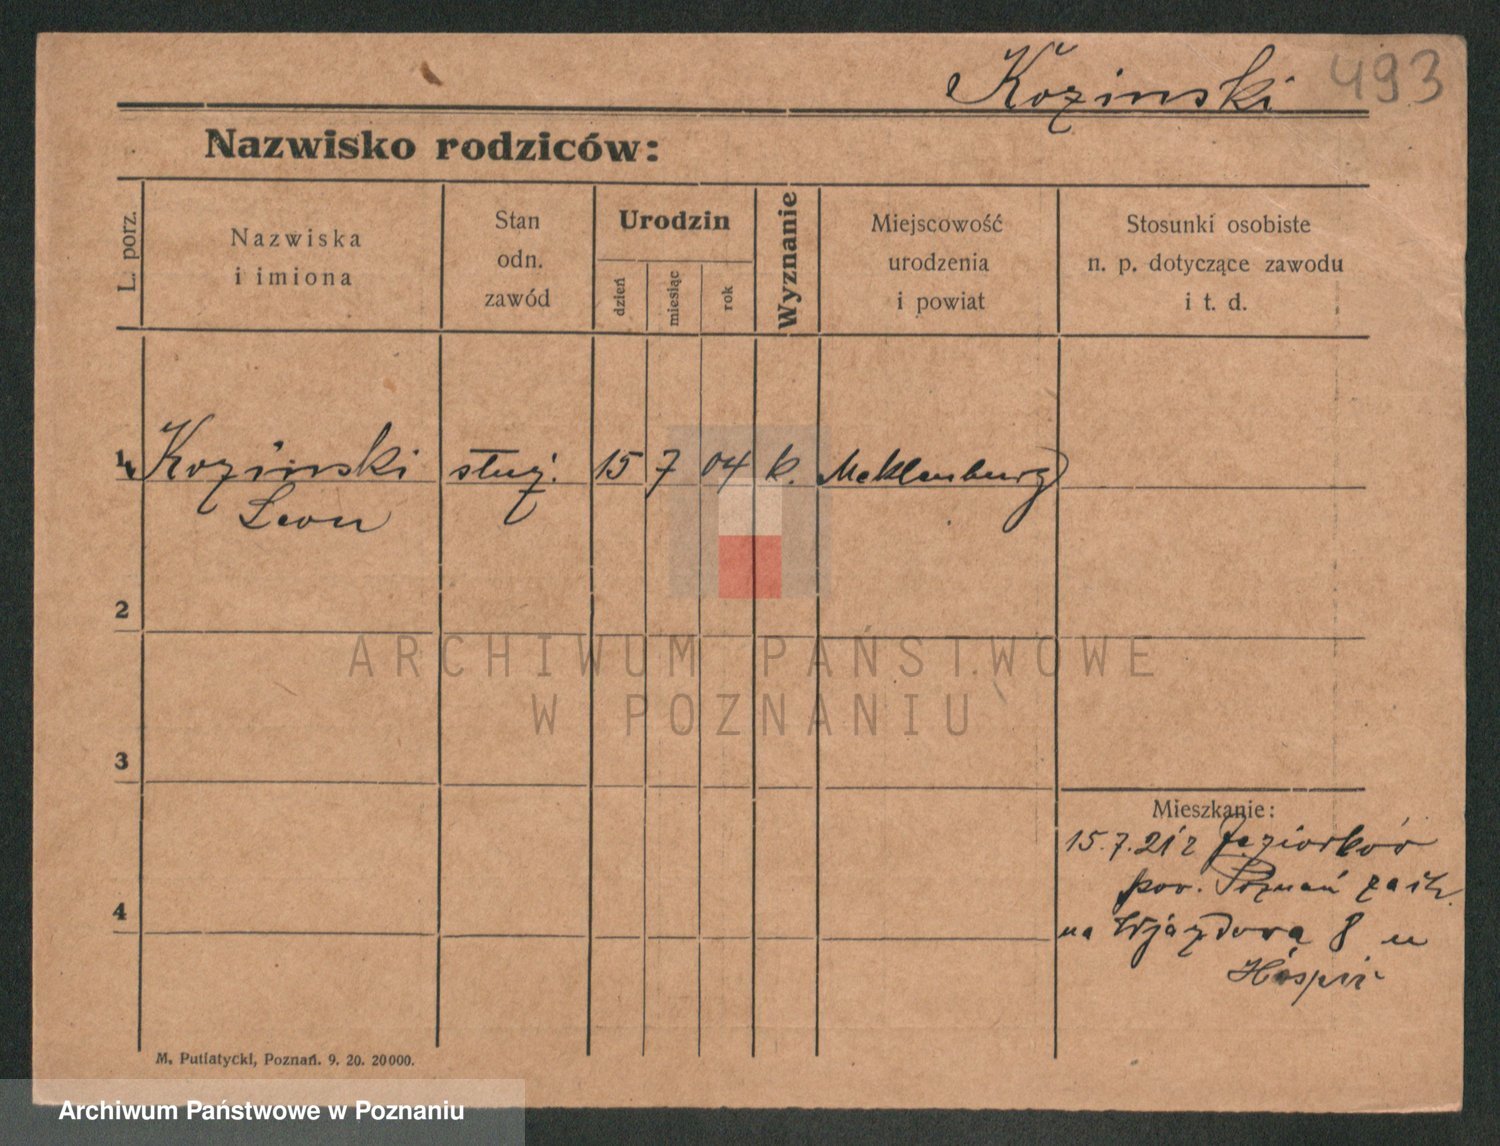 Kozinski 493
Nazwisko rodziców:
L. porz.
Nazwiska
i imiona
Stan
odn.
zawód
Urodzin
dzień
miesiąc
rok
Wyznanie
Miejscowość
urodzenia
i powiat
Stosunki osobiste
n. p. dotyczące zawodu
i t. d.
1 Kozinski służ. 15 7 04 k. Meklenburg
Leon
2
3
4
Mieszkanie:
15.7.21 z
pow. Poznań
na Wjazdowa 8 u
ARCHIWUM PAŃSTWOWE
W POZNANIU
M. Putiatycki, Poznań. 9. 20. 20000.
Archiwum Państwowe w Poznaniu